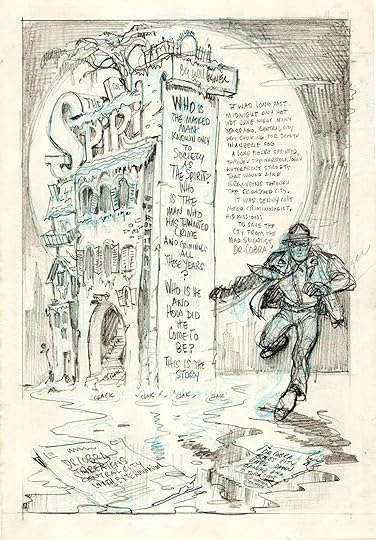 THE
SPIRIT
BY WILL EISNER
WHO IS
THE MASKED
MAN
KNOWN ONLY
TO
SOCIETY
AS
THE SPIRIT?
WHO
IS THE
MAN WHO
HAS THWARTED
CRIME
AND CRIMINALS
ALL
THESE YEARS
?
WHO IS HE
AND
HOW DID
HE
COME
TO
BE?
THIS IS THE
STORY
IT WAS LONG PAST
MIDNIGHT ON A HOT
WET JUNE NIGHT MANY
YEARS AGO, CENTRAL CITY
LAY CHOKING FOR BREATH
IN AN EERIE FOG
A LONE FIGURE SPRINTED
THROUGH THE NARROW, FOGGY
WATERFRONT STREETS
THAT WOUND LIKE
GREY VEINS THROUGH
THE FEVERED CITY.
IT WAS DENNY COLT
NOTED CRIMINOLOGIST,
HIS MISSION:
TO SAVE THE
CITY FROM THE
MAD SCIENTIST
DR. COBRA
CLACK
CLAK
CLAK
CLAK
DR COBRA
THREATENS
CENTRAL CITY
WITH
DR COBRA